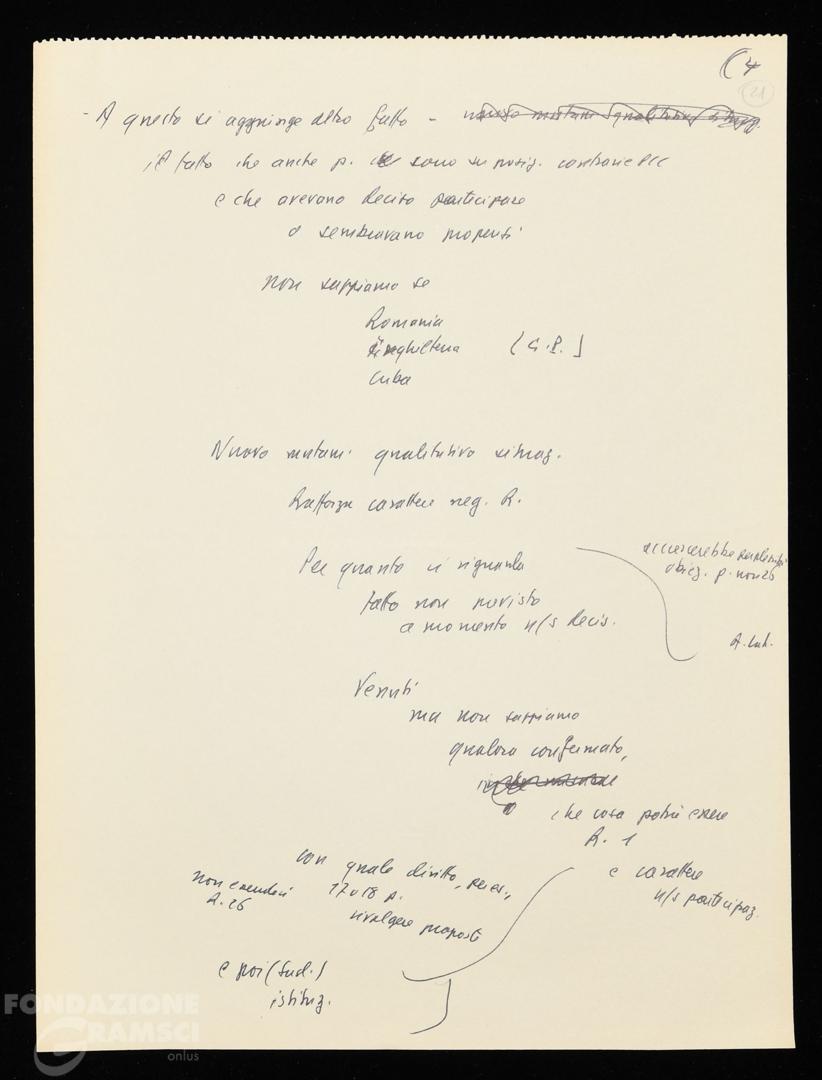 (4
21
- A questo si aggiunge altro fatto -
il fatto che anche p. sono su posiz. contrarie PCC
e che avevano deciso partecipare
o sembravano propensi
non sappiamo se
Romania
Inghilterra (G.B.)
Cuba
Nuovo mutam. qualitativo situaz.
Rafforza carattere neg. R.
Per quanto ci riguarda
fatto non previsto
a momento n/s decis.
accrescerebbe
obiez. p. non 26
Venuti
ma non sappiamo
qualora confermato,
che cosa potrà essere
R. 1
e carattere
n/s partecipaz.
con quale diritto, per es.,
17 o 18 p.
rivolgere proposte
non essendoci
R. 26
e poi (Sud.)
istituz.
FONDAZIONE
GRAMSCI
onlus